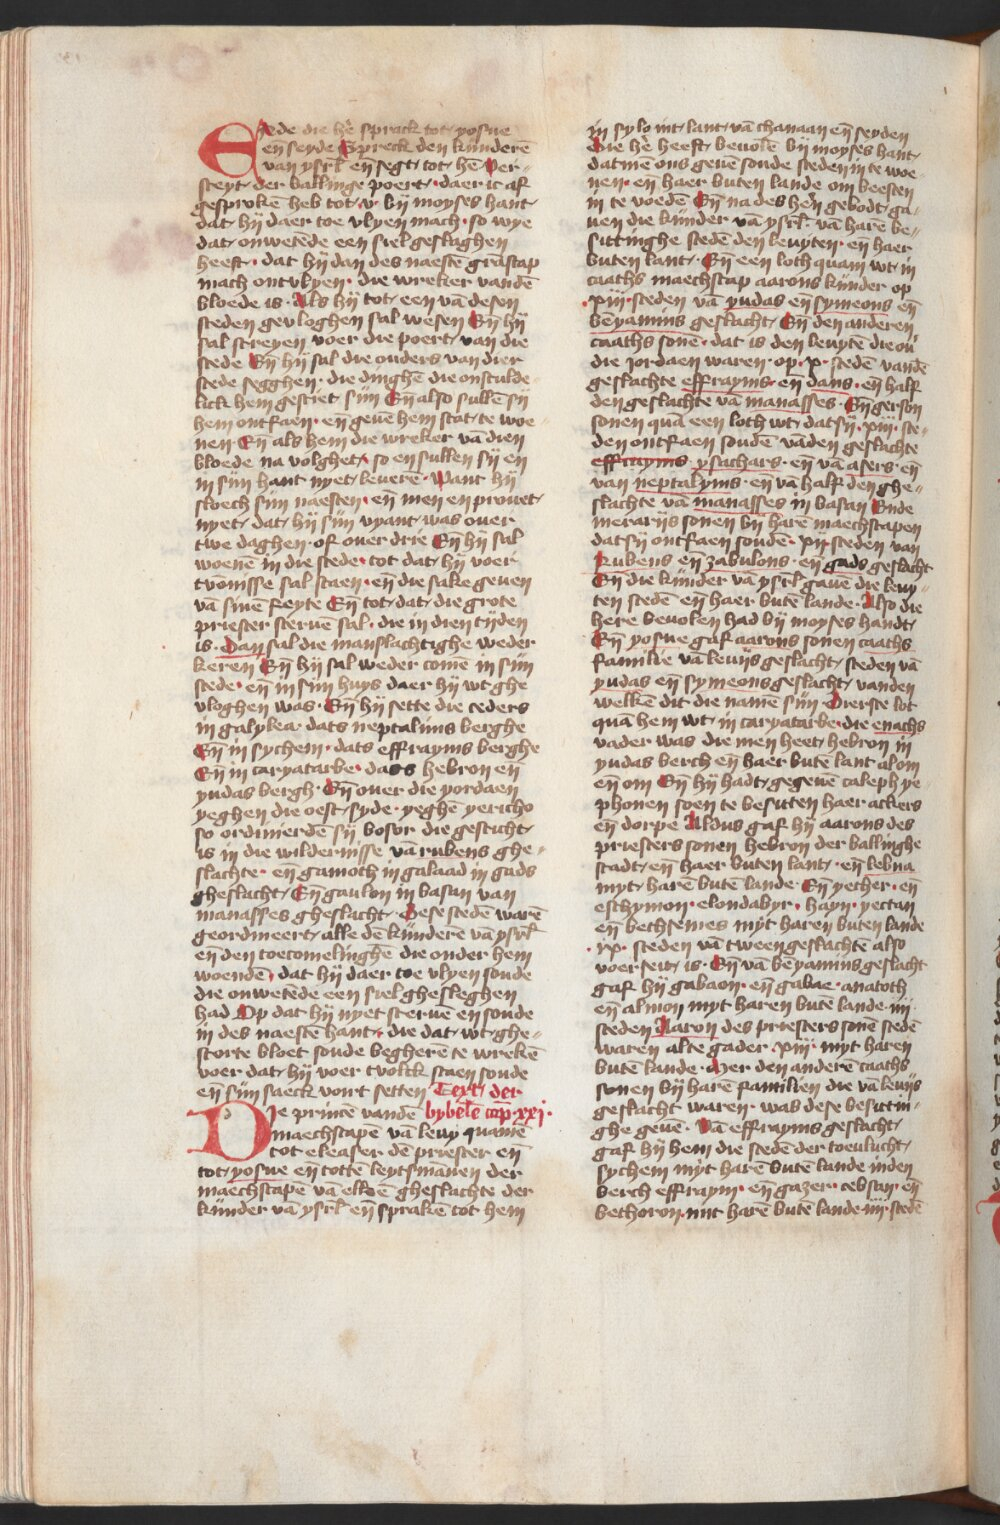 Ende die hē sprack tot yosue
en̄ seyde Spreck den kinderē
van ysrl̄ en̄ segt tot hē Ver-
steyt der ballinge poert daer ic af
gesprokē heb tot v by moyses hant
dat hij daer toe vlyen mach so wye
dat onwetēde een siel geslaghen
heeft dat hij dan des naestē gramscap
mach ontvlyen die wreker vandē
bloede is Als hij tot een vā desen
steden gevloghen sal wesen En̄ hij
sal streyen voer die poert van die
stede En̄ hij sal die ouders van dier
stede segghen die dinghē die onsculde
lick hem gesciet sijn En̄ also sullē sij
hem ontfaen en̄ gevē hem stat te woe
nen En̄ als hem die wreker vā dien
bloede na volghet so en sullen sij en
in sijn hant nyet leverē Want hij
sloech sijn naesten en̄ men en provet
nyet dat hij sijn vyant was over
twe daghen of over drie En̄ hij sal
woenē in die stede tot dat hij voer
tvōnisse sal staen en̄ die sake geven
vā sinē feyte En̄ tot dat die grote
priester stervē sal die in dien tijden
is Dan sal die manslachtighe weder
keren En̄ hij sal weder comē in sijn
stede en̄ in sijn huys daer hij wt ghe
vloghen was En̄ hij sette die ceders
in galylea dats neptalims berghe
En̄ in sychem dats effrayms berghe
En̄ in caryatarbe dats hebron en̄
yudas bergh En̄ over die yordaen
yeghen die oest syde yeghē yericho
so ordinierdē sij bosor die gesticht
is in die wildernisse vā rubens ghe-
slachte en̄ gamoth in galaad in gads
gheslacht En̄ gaulon in basan van
manasses gheslacht Dese stedē warē
geordineert alle dē kinderē vā ysrl̄
en̄ den toecomelinghē die onder hem
woendē dat hij daer toe vlyen soude
die onwetēde een siel ghesleghen
had Op dat hij nyet stervē en soude
in des naestē hant die dat wt ghe-
storte bloet soude begherē te wrekē
voer dat hij voer tvolck staen soude
en̄ sijn saeck vort setten Text der
bybelē cap xxi
Die princē vandē
maechscapē vā levy quamē
tot eleaser dē priester en̄
tot yosue en̄ tottē leytsmānen der
maechscapē vā elkē gheslachte der
kinder vā ysrl̄ en̄ sprakē tot hem
in sylo int lant vā chanaan en̄ seyden
Die hē heeft bevolē bij moyses hant
datmē ons gevē soude steden in te woe-
nen en̄ haer buten lande om beesten
in te voedē En̄ na des hēn gebodt ga-
ven die kinder vā ysrl̄ vā harē be-
sittinghe stedē den levyten en̄ haer
buten lant En̄ een loth quam wt in
caaths maechscap aarons kinder op
xiii steden vā yudas en̄ symeons en̄
bēyamins geslacht En̄ den anderen
caaths sonē dat is den levytē die ou
die jordaen waren op x stedē vandē
geslachte effrayms en̄ dans en̄ half
den geslachte vā manasses En̄ gerson
sonen quā een loth wt dat sij xiii ste-
den ontfaen soudē vāden geslachte
effrayms ysachars en̄ vā asers en̄
van neptalyms en̄ vā half den ghe-
slachte vā manasses in basan Ende
merarijs sonen bij harē maechscapen
dat sij ontfaen soudē xij steden van
Rubens en̄ zabulons en̄ gads geslacht
En̄ die kinder vā ysrl̄ gavē die levy-
ten stedē en̄ haer butē lande Also die
here bevolen had bij moyses handt
En̄ yosue gaf aarons sonen caaths
familie vā levijs geslacht steden vā
yudas en̄ symeons geslacht vanden
welkē dit die namē sijn Dierste lot
quā hem wt in caryatarbe die enachs
vader was die men heet hebron in
yudas berch en̄ haer butē lant alom
en̄ om En̄ hij hadt gegevē caleph ye-
phonen soen te besitten haer ackers
en̄ dorpe Aldus gaf hij aarons des
priesters sonen hebron der ballinghe
stadt en̄ haer buten lant en̄ lebna
myt harē butē lande En̄ yether en̄
esthymon elondabyr hayn yectan
en̄ bethsemes myt haren buten lande
ix steden vā tween geslachtē also
voer seit is En̄ vā bēyamins geslacht
gaf hij gabaon en̄ gabae anatoth
en̄ almon myt haren butē lande iiij
steden Aaron des priesters sonē stedē
waren alte gader xiij myt haren
butē lande Mer den anderē caaths
sonen bij harē familien die vā levijs
geslacht waren was dese besittin-
ghe gevē Vā effrayms geslacht
gaf hij hem die stedē der toevlucht
sychem myt harē butē lande inden
berch effraym en̄ gazer cebsan en̄
bethoron mit harē butē lande iiij stedē